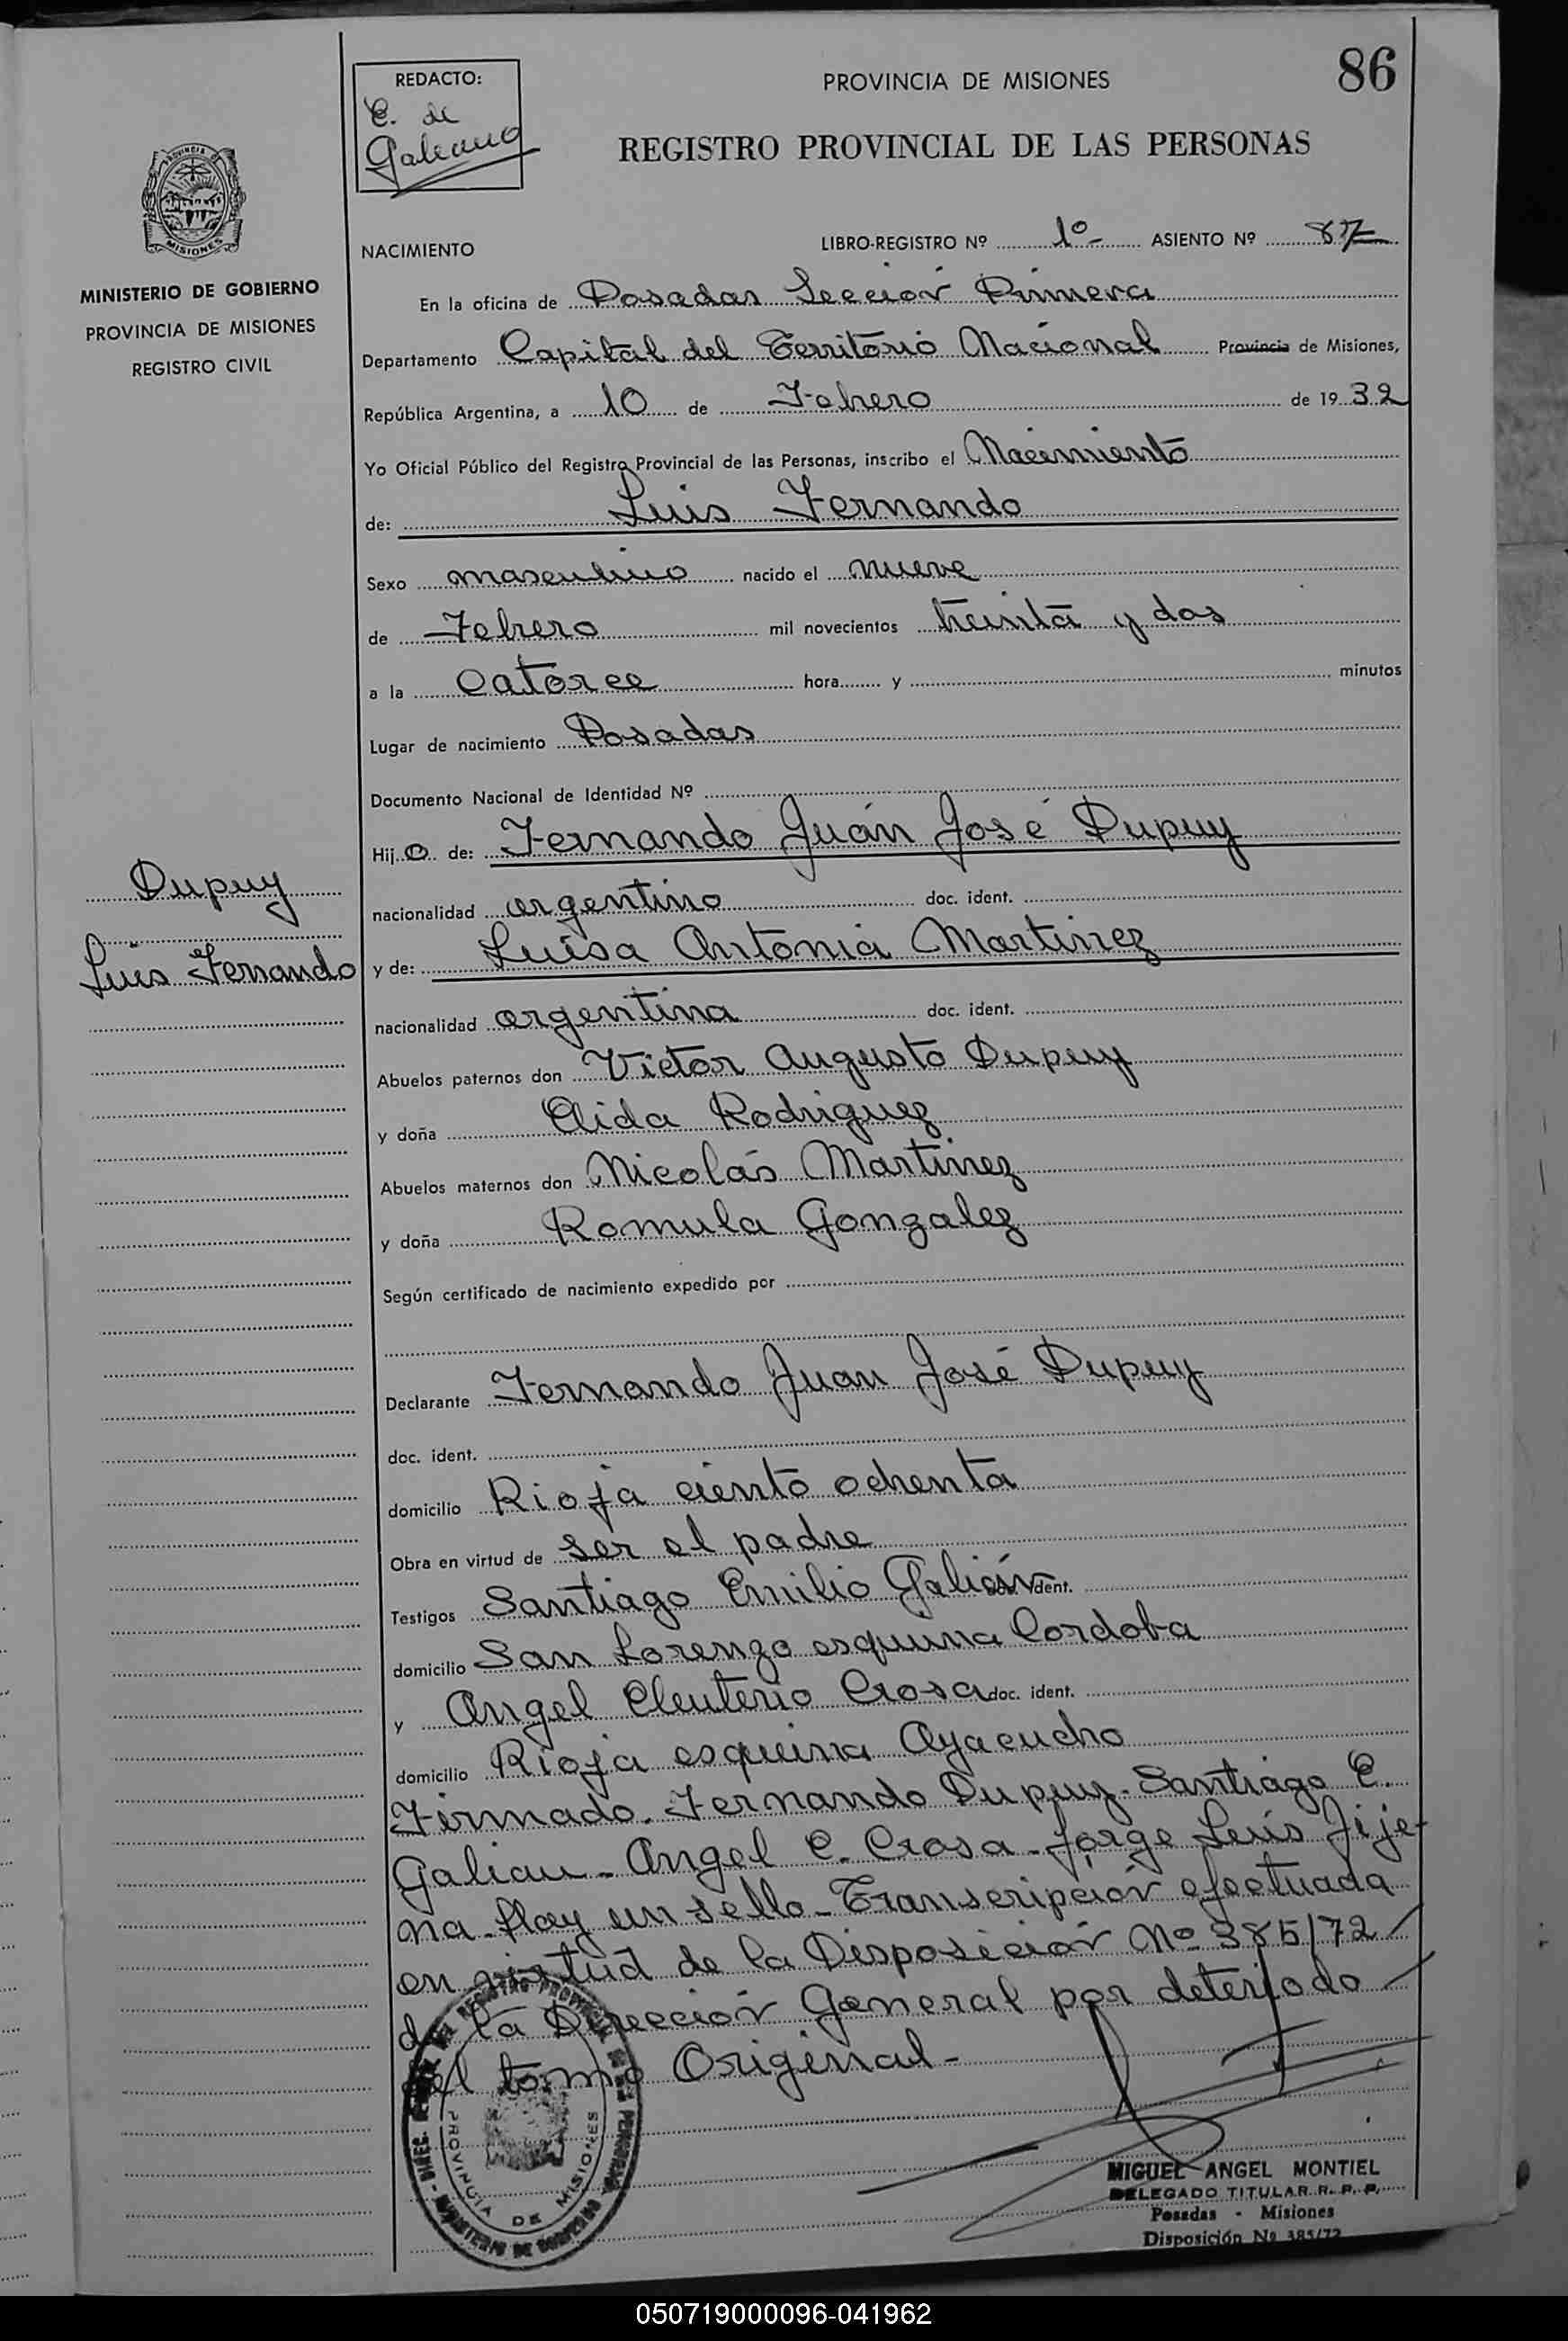 86
REDACTO:
E. de
Galeano
PROVINCIA DE MISIONES
REGISTRO PROVINCIAL DE LAS PERSONAS
PROVINCIA DE
MISIONES
MINISTERIO DE GOBIERNO
PROVINCIA DE MISIONES
REGISTRO CIVIL
NACIMIENTO LIBRO-REGISTRO Nº 1º- ASIENTO Nº 87
En la oficina de Posadas Sección Primera
Departamento Capital del Território Nacional Provincia de Misiones,
República Argentina, a 10 de Febrero de 1932
Yo Oficial Público del Registro Provincial de las Personas, inscribo el Nacimiento
de: Luis Fernando
Sexo masculino nacido el nueve
de Febrero mil novecientos treinta y dos
a la Catorce hora y minutos
Lugar de nacimiento Posadas
Documento Nacional de Identidad Nº
Hijo de: Fernando Juán José Dupuy
Dupuy
nacionalidad argentino doc. ident.
Luis Fernando
y de: Luísa Antonia Martinez
nacionalidad argentina doc. ident.
Abuelos paternos don Victor Augusto Dupuy
y doña Elida Rodriguez
Abuelos maternos don Nicolás Martinez
y doña Romula Gonzalez
Según certificado de nacimiento expedido por
Declarante Fernando Juan José Dupuy
doc. ident.
domicilio Rioja ciento ochenta
Obra en virtud de ser el padre
Testigos Santiago Emilio Galián doc. ident.
domicilio San Lorenzo esquina Cordoba
y Angel Eleuterio Crosa doc. ident.
domicilio Rioja esquina Ayacucho
Firmado. Fernando Dupuy- Santiago E.
Galian- Angel E. Crosa- Jorge Luís Jije-
na- Hay un sello- Transcripción efectuada
en virtud de la Disposición Nº 385/72
de la Dirección General por deteriodo
del tomo Original-
PROVINCIA DE MISIONES
MIGUEL ANGEL MONTIEL
DELEGADO TITULAR R. P. P.
Posadas - Misiones
Disposición Nº 385/72
050719000096-041962